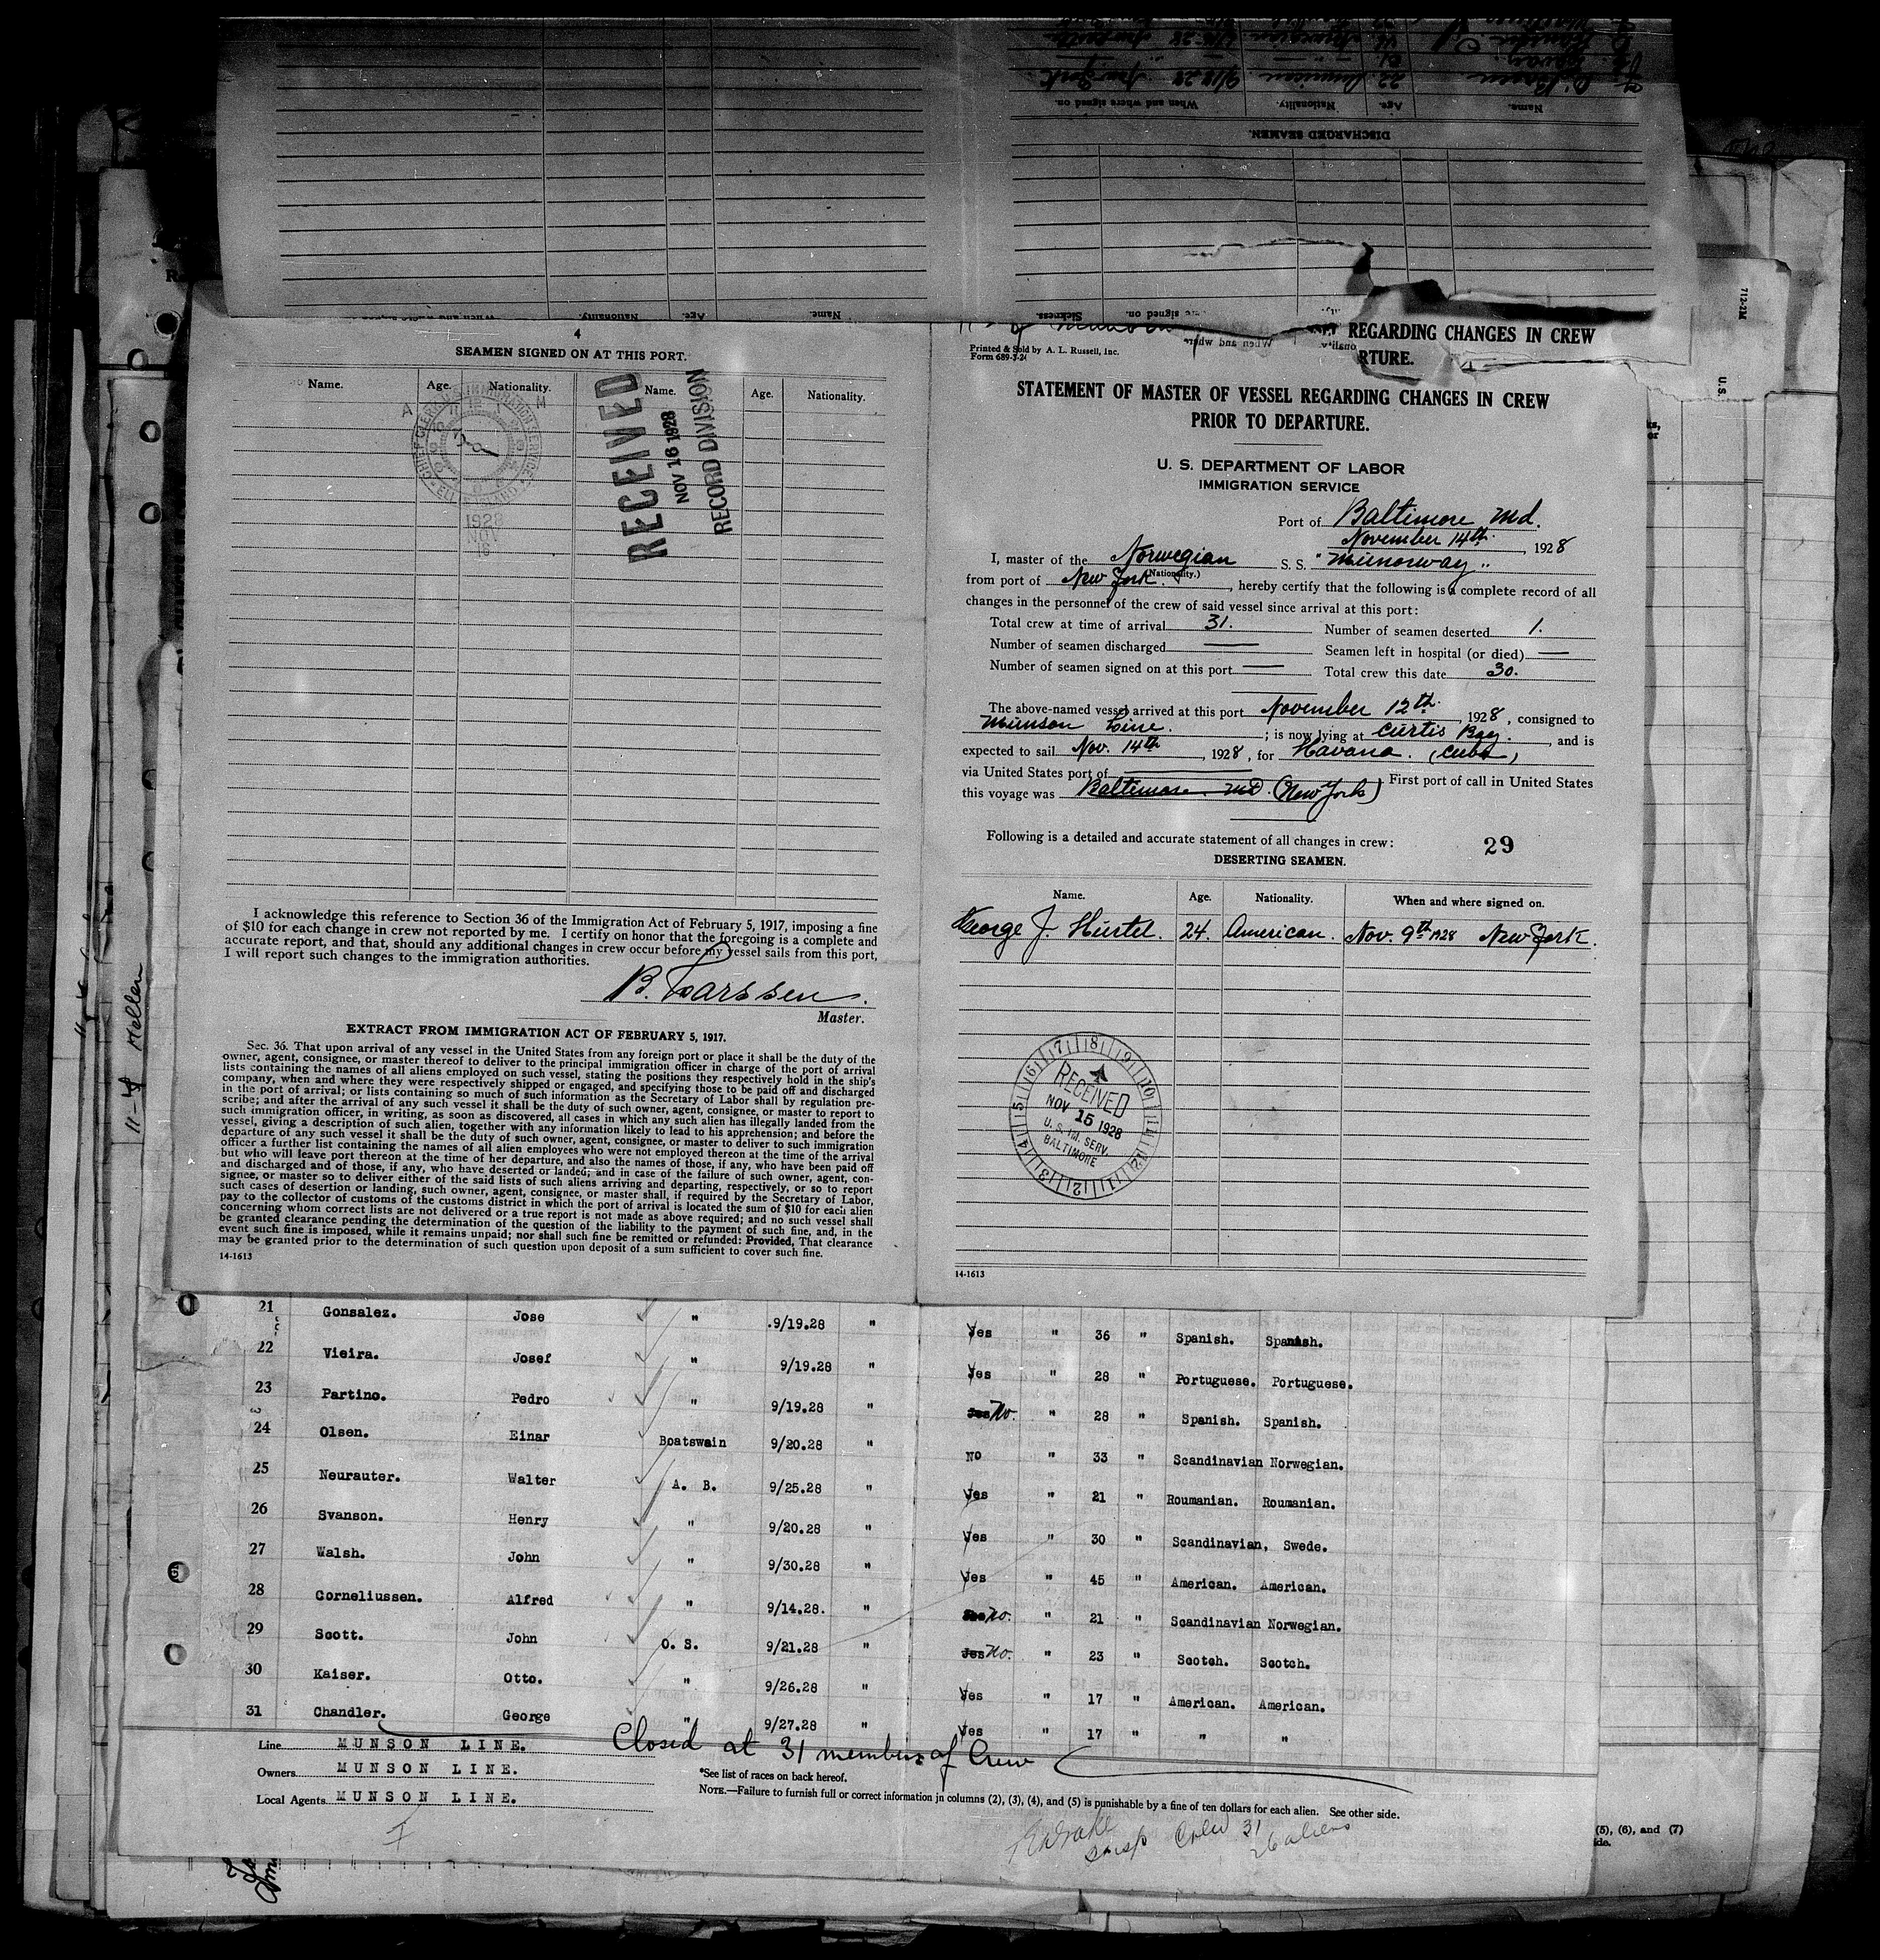 DISCHARGED SEAMEN.
Name. Age. Nationality. When and where signed on.
712-22M
U.S.
4
SEAMEN SIGNED ON AT THIS PORT.
Name. Age. Nationality. Name. Age. Nationality.
CHIEF CLERK U.S. IMMIGRATION SERVICE
ELLIS ISLAND
1928
NOV
16
RECEIVED
NOV 16 1928
RECORD DIVISION
I acknowledge this reference to Section 36 of the Immigration Act of February 5, 1917, imposing a fine
of $10 for each change in crew not reported by me. I certify on honor that the foregoing is a complete and
accurate report, and that, should any additional changes in crew occur before my vessel sails from this port,
I will report such changes to the immigration authorities.
B. Larssen.
Master.
EXTRACT FROM IMMIGRATION ACT OF FEBRUARY 5, 1917.
Sec. 36. That upon arrival of any vessel in the United States from any foreign port or place it shall be the duty of the
owner, agent, consignee, or master thereof to deliver to the principal immigration officer in charge of the port of arrival
lists containing the names of all aliens employed on such vessel, stating the positions they respectively hold in the ship's
company, when and where they were respectively shipped or engaged, and specifying those to be paid off and discharged
in the port of arrival; or lists containing so much of such information as the Secretary of Labor shall by regulation pre-
scribe; and after the arrival of any such vessel it shall be the duty of such owner, agent, consignee, or master to report to
such immigration officer, in writing, as soon as discovered, all cases in which any such alien has illegally landed from the
vessel, giving a description of such alien, together with any information likely to lead to his apprehension; and before the
departure of any such vessel it shall be the duty of such owner, agent, consignee, or master to deliver to such immigration
officer a further list containing the names of all alien employees who were not employed thereon at the time of the arrival
but who will leave port thereon at the time of her departure, and also the names of those, if any, who have been paid off
and discharged and of those, if any, who have deserted or landed; and in case of the failure of such owner, agent, con-
signee, or master so to deliver either of the said lists of such aliens arriving and departing, respectively, or so to report
such cases of desertion or landing, such owner, agent, consignee, or master shall, if required by the Secretary of Labor,
pay to the collector of customs of the customs district in which the port of arrival is located the sum of $10 for each alien
concerning whom correct lists are not delivered or a true report is not made as above required; and no such vessel shall
be granted clearance pending the determination of the question of the liability to the payment of such fine, and, in the
event such fine is imposed, while it remains unpaid; nor shall such fine be remitted or refunded: Provided, That clearance
may be granted prior to the determination of such question upon deposit of a sum sufficient to cover such fine.
14-1613
REGARDING CHANGES IN CREW
RTURE.
Printed & Sold by A. L. Russell, Inc.
Form 689-7-24
STATEMENT OF MASTER OF VESSEL REGARDING CHANGES IN CREW
PRIOR TO DEPARTURE.
U. S. DEPARTMENT OF LABOR
IMMIGRATION SERVICE
Port of Baltimore, Md.
November 14th., 1928
I, master of the Norwegian S. S. "Munorway"
(Nationality.)
from port of New York., hereby certify that the following is a complete record of all
changes in the personnel of the crew of said vessel since arrival at this port:
Total crew at time of arrival 31. Number of seamen deserted 1.
Number of seamen discharged — Seamen left in hospital (or died) —
Number of seamen signed on at this port — Total crew this date 30.
The above-named vessel arrived at this port November 12th., 1928, consigned to
Munson Line.; is now lying at Curtis Bay., and is
expected to sail Nov. 14th, 1928, for Havana. (Cuba)
via United States port of — First port of call in United States
this voyage was Baltimore Md (New York)
Following is a detailed and accurate statement of all changes in crew: 29
DESERTING SEAMEN.
Name. Age. Nationality. When and where signed on.
George J. Hürtel. 24. American. Nov. 9th 1928 New York.
RECEIVED
NOV 15 1928
U. S. IM. SERV.
BALTIMORE
14-1613
21 Gonsalez. Jose " 9/19.28 " Yes " 36 " Spanish. Spanish.
22 Vieira. Josef " 9/19.28 " Yes " 28 " Portuguese. Portuguese.
23 Partino. Pedro " 9/19.28 " Yes No. " 28 " Spanish. Spanish.
24 Olsen. Einar Boatswain 9/20.28 " No " 33 " Scandinavian Norwegian.
25 Neurauter. Walter A. B. 9/25.28 " Yes " 21 " Roumanian. Roumanian.
26 Svanson. Henry " 9/20.28 " Yes " 30 " Scandinavian, Swede.
27 Walsh. John " 9/30.28 " Yes " 45 " American. American.
28 Corneliussen. Alfred " 9/14.28. " No. " 21 " Scandinavian Norwegian.
29 Scott. John O. S. 9/21.28 " Yes No. " 23 " Scotch. Scotch.
30 Kaiser. Otto. " 9/26.28 " Yes " 17 " American. American.
31 Chandler. George " 9/27.28 " Yes " 17 " " "
Closed at 31 members of Crew
Line MUNSON LINE.
Owners MUNSON LINE.
Local Agents MUNSON LINE.
*See list of races on back hereof.
NOTE.—Failure to furnish full or correct information in columns (2), (3), (4), and (5) is punishable by a fine of ten dollars for each alien. See other side.
Insp Crew 31
26 aliens
(5), (6), and (7)
11-4 Mellen